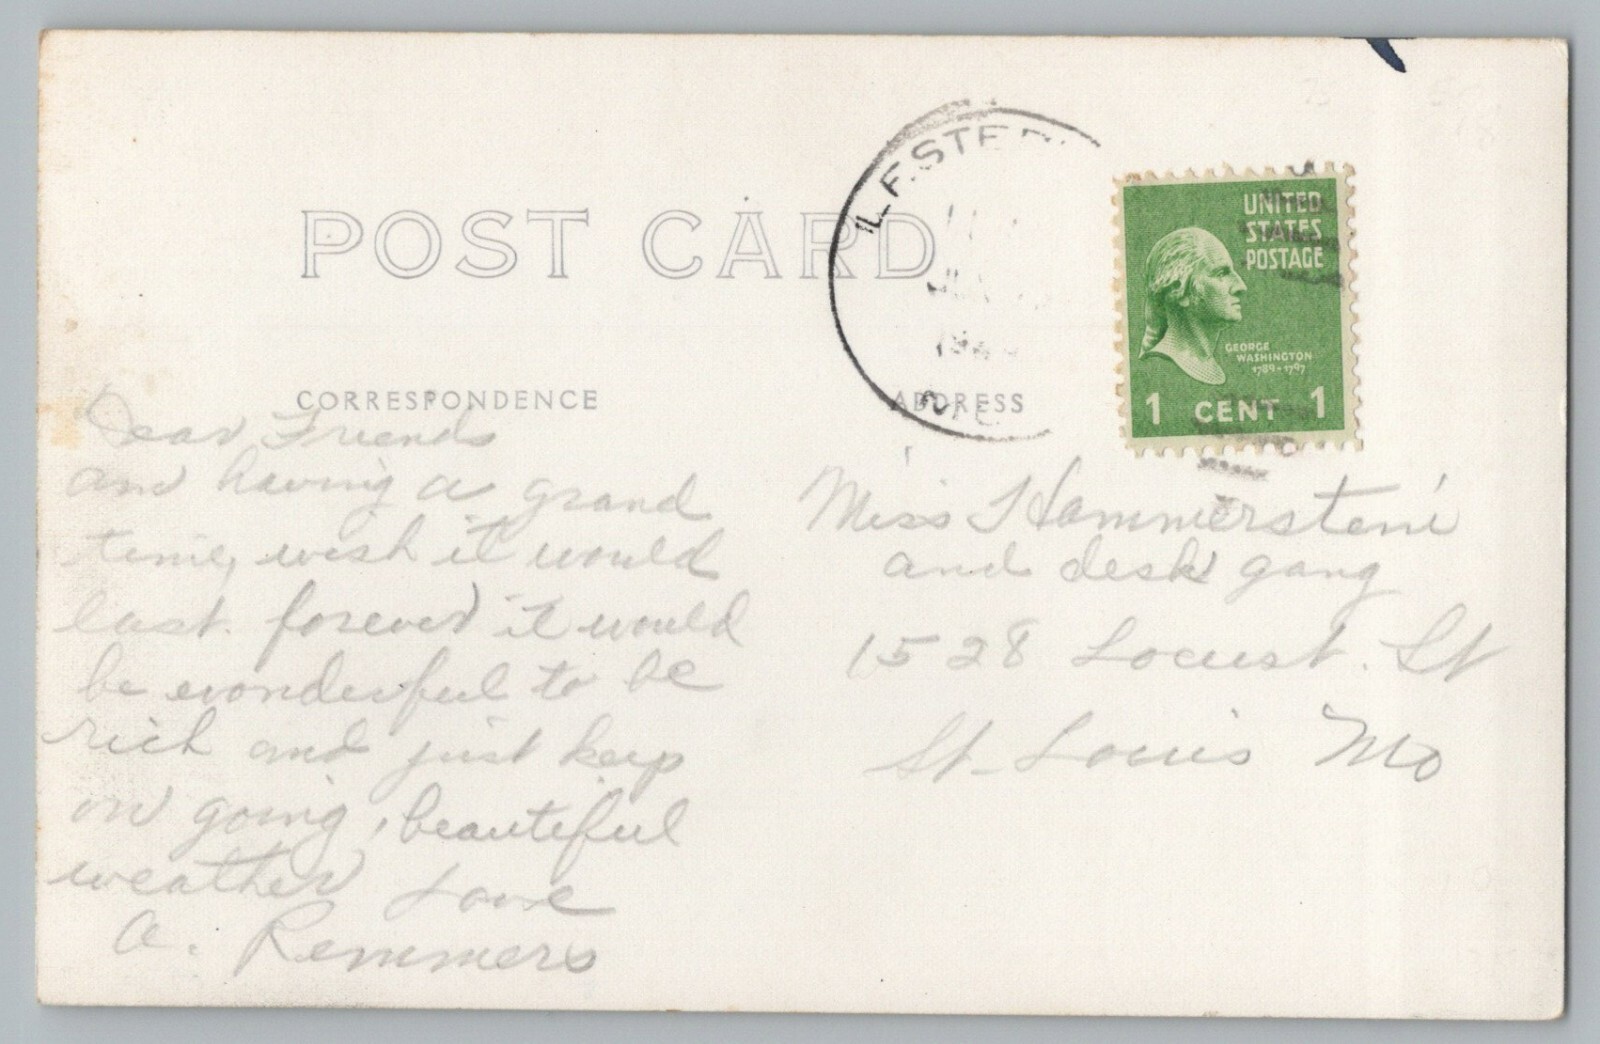 POST CARD
CORRESPONDENCE
ADDRESS
UNITED
STATES
POSTAGE
GEORGE
WASHINGTON
1789-1797
1 CENT 1
Dear Friends
am having a grand
time, wish it would
last forever it would
be wonderful to be
rich and just keep
on going, beautiful
weather Love
A. Remmers
Miss Hammerstein
and desk gang
1528 Locust. St
St. Louis Mo